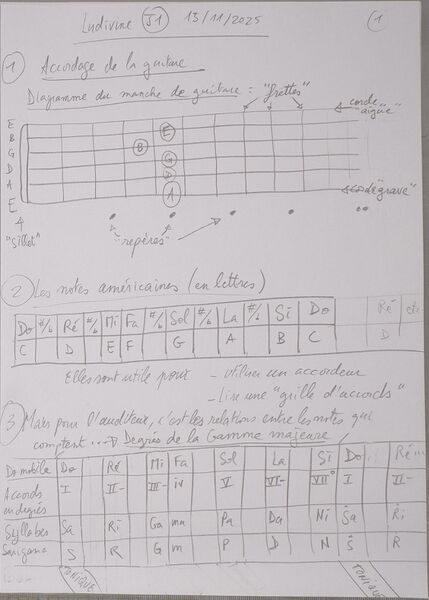 Ludivine S1 13/11/2025 1
1 Accordage de la guitare
Diagramme du manche de guitare : "frettes"
corde "aiguë"
E
B E
G B
D G
A D
E A
corde "grave"
"Sillet" "repères"
2 Les notes américaines (en lettres)
Do #/b Ré #/b Mi Fa #/b Sol #/b La #/b Si Do Ré etc.
C D E F G A B C D
Elles sont utile pour - utiliser un accordeur
- Lire une "grille d'accords"
3 Mais pour l'auditeur, c'est les relations entre les notes qui
comptent ... Degrés de la Gamme majeure
Do mobile Do Ré Mi Fa Sol La Si Do Ré
Accords en degrés I II- III- iv V VI- VII° I II-
Syllabes Sa Ri Ga ma Pa Da Ni Sa Ri
Sargama S R G m P D N S R
TONIQUE TONIQUE